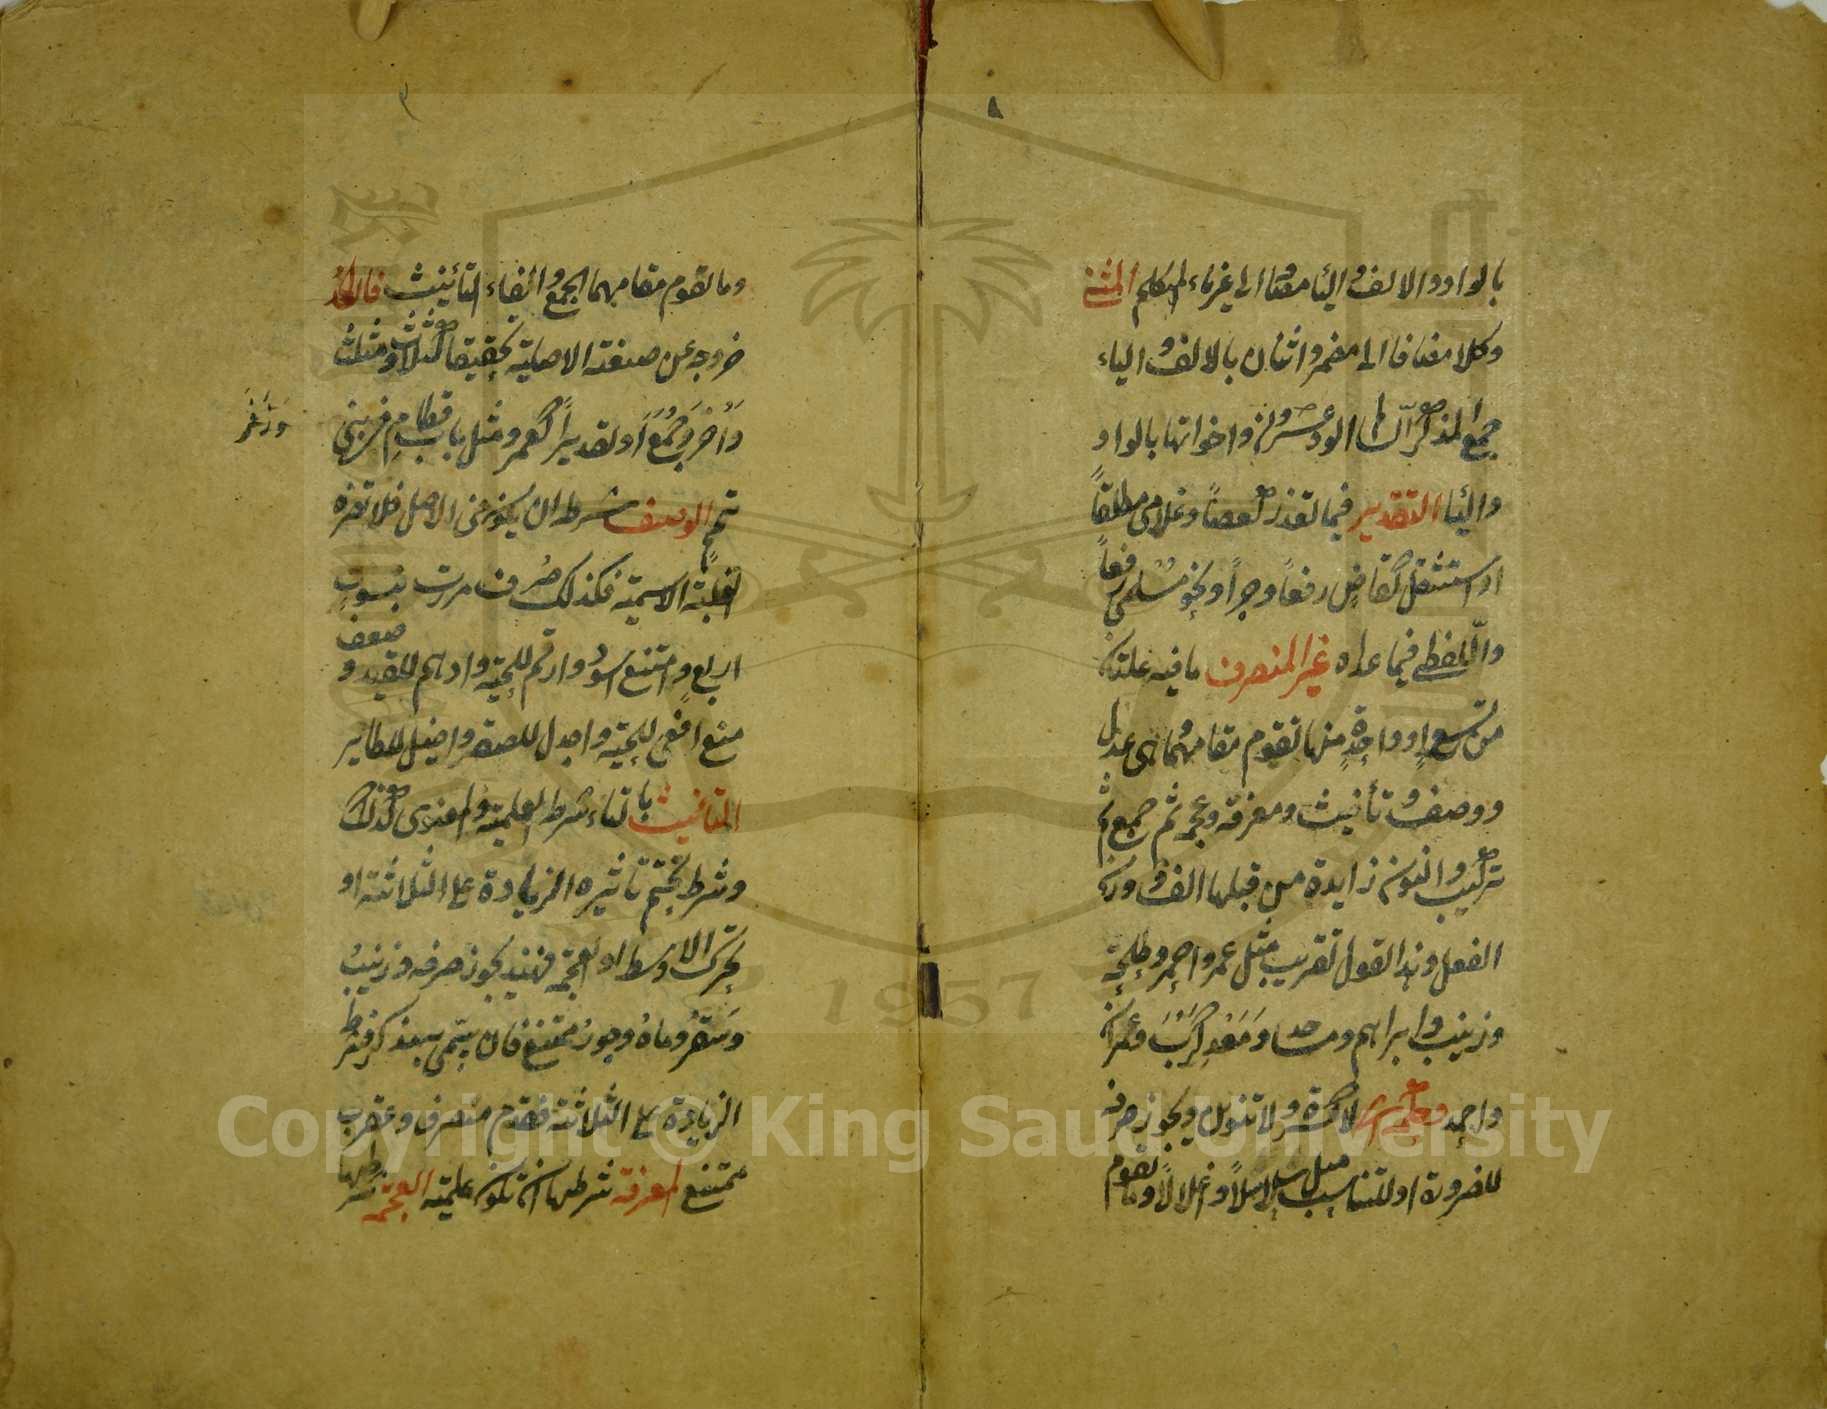 ٨
بالواو والالف والياء مضافا الى غير ياء المتكلم المثنى
وكلا مضافا الى مضمر واثنان بالالف والياء
جمع المذكر السالم والو وعشرون واخواتها بالواو
والياء التقدير فيما تعذر كعصاً وغلامي مطلقاً
او استثقل كقاضٍ رفعاً وجراً ونحو مسلميّ رفعاً
واللفظي فيما عداه غير المنصرف ما فيه علتان
من تسعٍ او واحدةٍ منها تقوم مقامهما وهي عدل
ووصف وتأنيث ومعرفة وعجمة ثم جمع ثم
تركيب والنون زايدة من قبلها الف ووزن
الفعل وهذا القول تقريب مثل عمر واحمر وطلحة
وزينب وابراهيم ومساجد ومَعْدِيكَرِبَ وعمران
واحمد وحكمه ان لا كسرة ولا تنوين ويجوز صرفه
للضرورة او للتناسب مثل سلاسلاً واغلالاً وما يقوم
٩
وما تقوم مقامهما الجمع والفاء التأنيث فالعدل
خروجه عن صيغته الاصلية تحقيقا كثلاث ومثلث
وأُخَر وجُمَع او تقديراً كعمر ومثل باب قطام في بني
وزفر
تميم الوصف شرطه ان يكون في الاصل فلا تضره
الغلبة الاسمية فلذلك صُرف مررت بنسوةٍ
اربعٍ وامتنع اسود وارقم للحية وادهم للقيد و
ضعف
منع افعى للحية واجدل للصقر واخيل للطاير
التانيث بالتاء شرط العلمية والمعنوي كذلك
وشرط تحتم تاثيره الزيادة على الثلاثة او
تحرك الاوسط او العجمة فهند يجوز صرفه وزينبُ
وسَقَرُ وماهُ وجورُ ممتنع فان سمّي به مذكر فشرط
الزيادة على الثلاثة فقدم منصرف وعقرب
ممتنع المعرفة شرطها ان تكون علمية العجمة شرطها
Copyright © King Saud University
1957